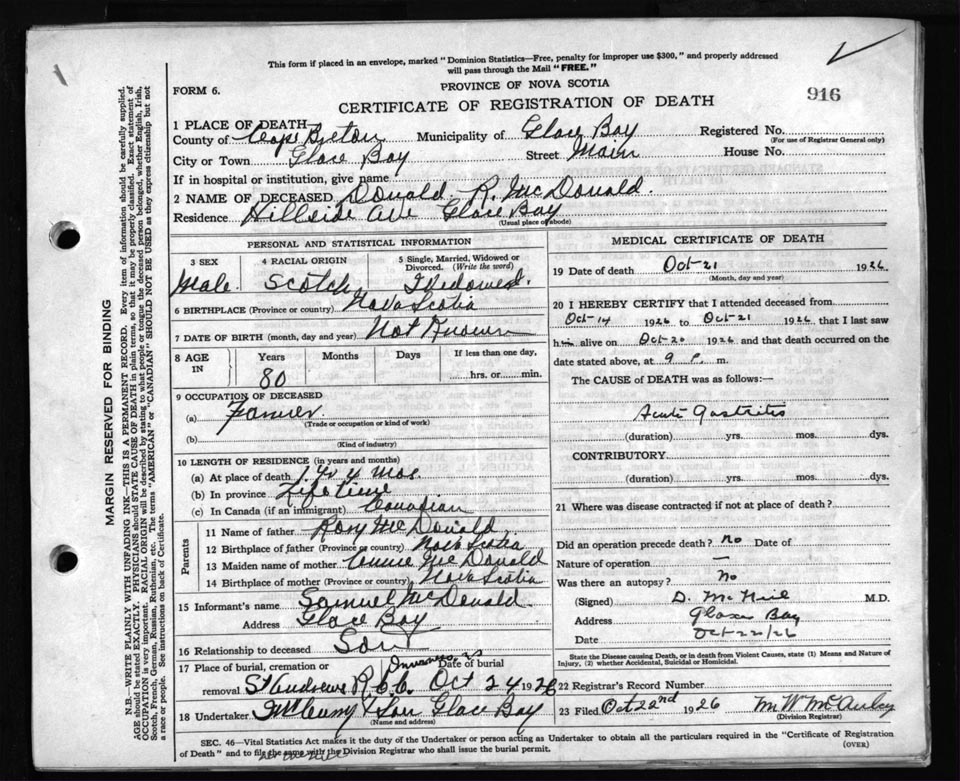 This form if placed in an envelope, marked "Dominion Statistics—Free, penalty for improper use $300," and properly addressed
will pass through the Mail "FREE."
PROVINCE OF NOVA SCOTIA
FORM 6.
916
CERTIFICATE OF REGISTRATION OF DEATH
1 PLACE OF DEATH
County of Cape Breton Municipality of Glace Bay Registered No.
(For use of Registrar General only)
City or Town Glace Bay Street Main House No.
If in hospital or institution, give name
2 NAME OF DECEASED Donald R. McDonald.
Residence Hillside Ave Glace Bay
(Usual place of abode)
PERSONAL AND STATISTICAL INFORMATION
3 SEX 4 RACIAL ORIGIN 5 Single, Married, Widowed or
Divorced. (Write the word)
Male Scotch Widowed.
6 BIRTHPLACE (Province or country) Nova Scotia
7 DATE OF BIRTH (month, day and year) Not Known
8 AGE IN Years Months Days If less than one day,
80 hrs. or min.
9 OCCUPATION OF DECEASED
(a) Farmer
(Trade or occupation or kind of work)
(b)
(Kind of industry)
10 LENGTH OF RESIDENCE (in years and months)
(a) At place of death 4 mos.
(b) In province Lifetime
(c) In Canada (if an immigrant) Canadian
Parents
11 Name of father Rory McDonald
12 Birthplace of father (Province or country) Nova Scotia
13 Maiden name of mother Annie McDonald
14 Birthplace of mother (Province or country) Nova Scotia
15 Informant's name Samuel McDonald.
Address Glace Bay
16 Relationship to deceased Son
17 Place of burial, cremation or Date of burial
removal St Andrews R.C.C. Oct 24 1926
18 Undertaker & Son Glace Bay
(Name and address)
MEDICAL CERTIFICATE OF DEATH
19 Date of death Oct-21 1926
(Month, day and year)
20 I HEREBY CERTIFY that I attended deceased from
Oct-14 1926 to Oct-21 1926 that I last saw
him alive on Oct-20 1926 and that death occurred on the
date stated above, at 9 P. m.
The CAUSE of DEATH was as follows:—
Acute Gastritis
(duration) yrs. mos. dys.
CONTRIBUTORY
(duration) yrs. mos. dys.
21 Where was disease contracted if not at place of death?
Did an operation precede death? No Date of
Nature of operation —
Was there an autopsy? No
(Signed) D. McNeil M.D.
Address Glace Bay
Date Oct-22/26
State the Disease causing Death, or in death from Violent Causes, state (1) Means and Nature of
Injury, (2) whether Accidental, Suicidal or Homicidal.
22 Registrar's Record Number
23 Filed Oct 22nd 1926 M W McAuley
(Division Registrar)
SEC. 46—Vital Statistics Act makes it the duty of the Undertaker or person acting as Undertaker to obtain all the particulars required in the "Certificate of Registration
of Death" and to file the same with the Division Registrar who shall issue the burial permit.
(OVER)
MARGIN RESERVED FOR BINDING
N.B.—WRITE PLAINLY WITH UNFADING INK—THIS IS A PERMANENT RECORD. Every item of information should be carefully supplied.
AGE should be stated EXACTLY. PHYSICIANS should STATE CAUSE OF DEATH in plain terms, so that it may be properly classified. Exact statement of
OCCUPATION is very important. RACIAL ORIGIN will be described by stating to what people or tongue the deceased person belonged, whether English, Irish,
Scotch, French, German, Russian, Ruthenian, etc. The terms "AMERICAN" or "CANADIAN" SHOULD NOT BE USED as they express citizenship but not
a race or people. See instructions on back of Certificate.